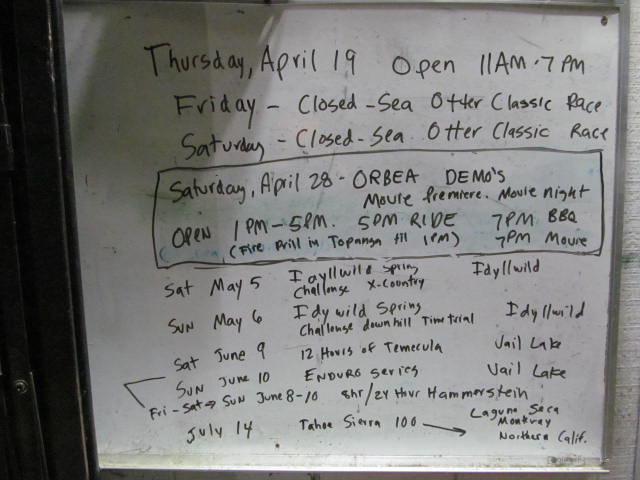 Thursday, April 19 Open 11AM-7PM
Friday - Closed - Sea Otter Classic Race
Saturday - Closed - Sea Otter Classic Race
Saturday, April 28 - ORBEA DEMO'S
Movie Premiere. Movie night
OPEN 1PM-5PM. 5PM RIDE 7PM BBQ
(Fire Drill in Topanga til 1PM) 7PM Movie
Sat May 5 Idyllwild Spring Idyllwild
Challenge X-Country
SUN May 6 Idywild Spring Idyllwild
Challenge downhill Time trial
Sat June 9 12 Hours of Temecula Vail Lake
SUN June 10 ENDURO series Vail Lake
Fri-Sat→ SUN June 8-10 8hr/24 Hour Hammerstein
Laguna Seca
July 14 Tahoe Sierra 100 → Montray
Northern Calif.